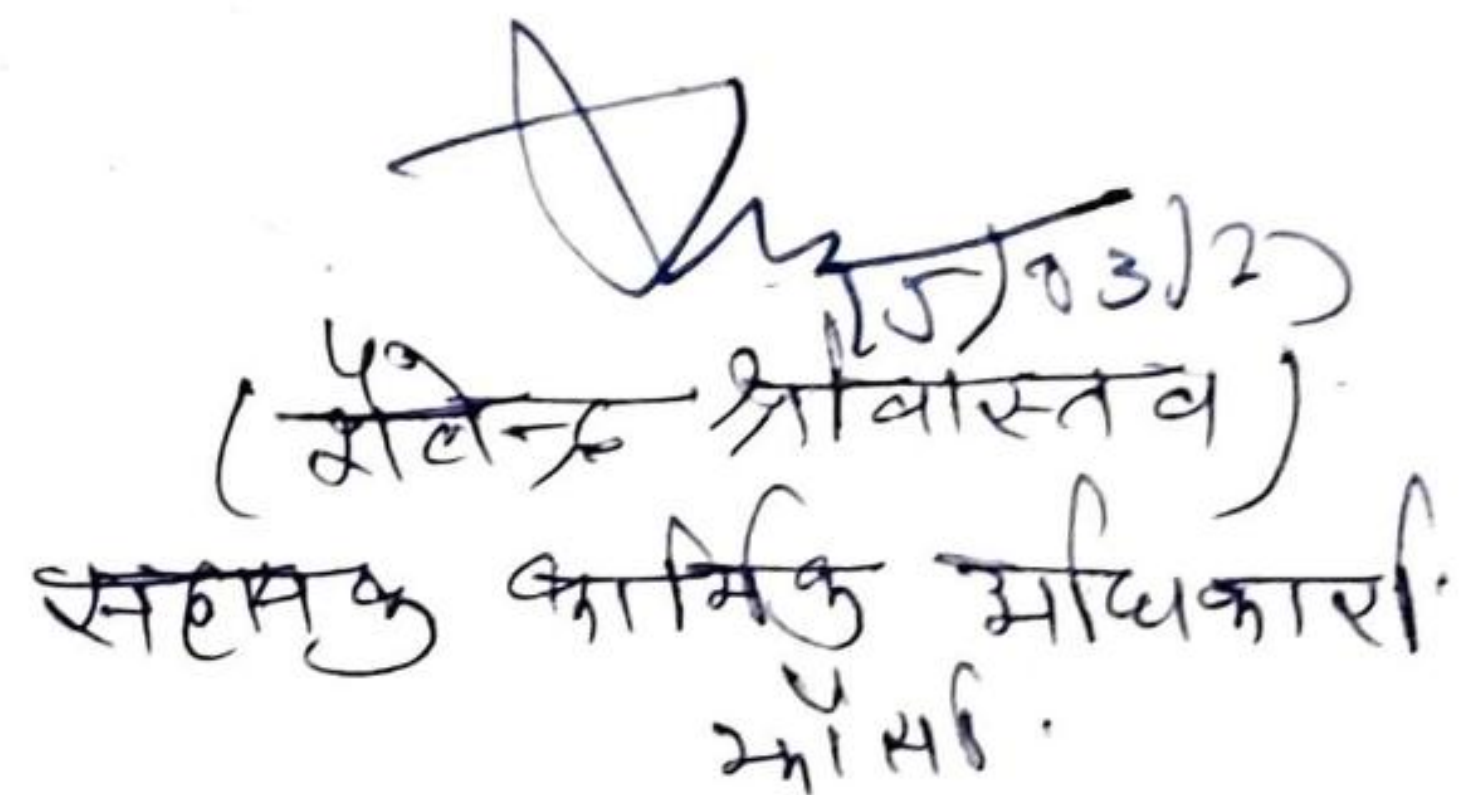 15/03/2)
(शैलेन्द्र श्रीवास्तव)
सहायक कार्मिक अधिकारी.
झाँसी.